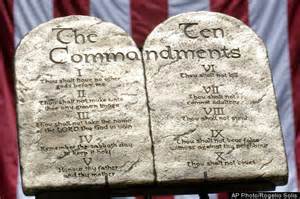 The Ten
Commandments
Thou shalt have no other
gods before me
II
Thou shalt not make unto
thee any graven images
III
Thou shalt not take the name
of the LORD thy God in vain
IV
Remember the sabbath day
to keep it holy
V
Honour thy father
and thy mother
VI
Thou shalt not kill
VII
Thou shalt not
commit adultery
VIII
Thou shalt not steal
IX
Thou shalt not bear false
witness against thy neighbour
Thou shalt not covet
AP Photo/Rogelio Solis